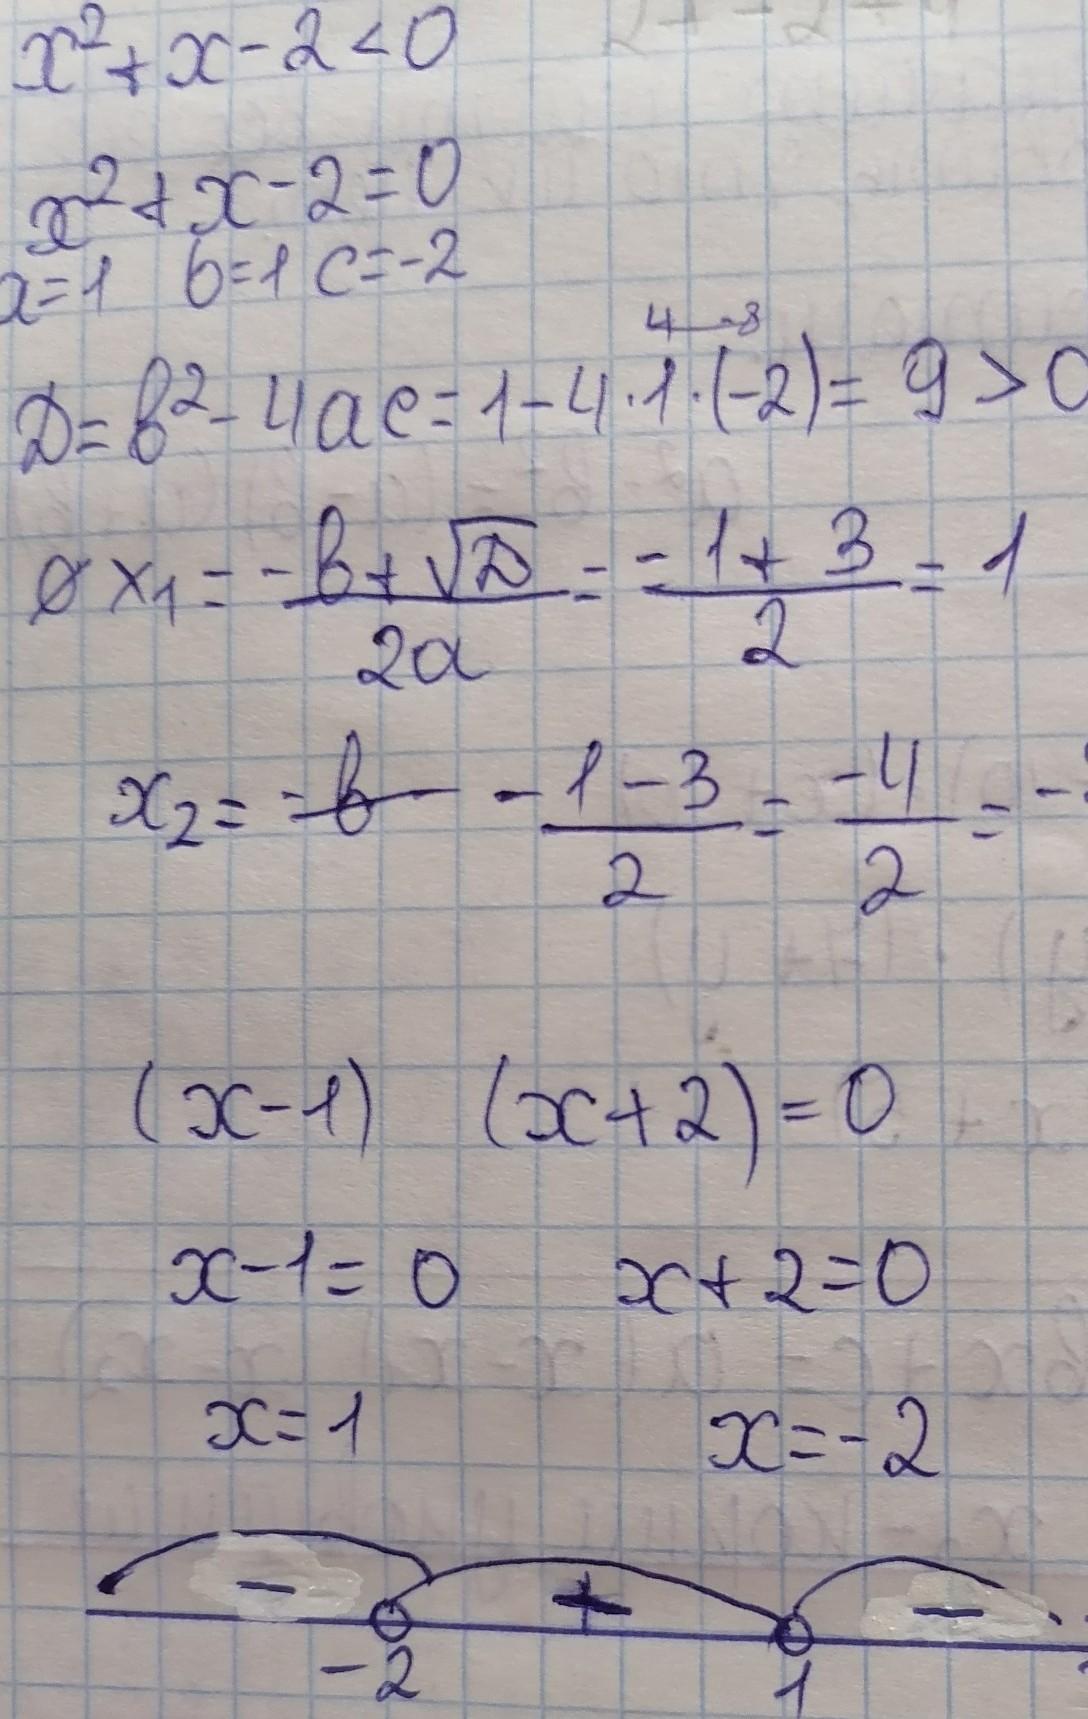 x² + x - 2 < 0
x² + x - 2 = 0
a=1 b=1 c=-2
4 -8
D = b² - 4ac = 1 - 4·1·(-2) = 9 > 0
x₁ = (-b + √D)/(2a) = (-1 + 3)/2 = 1
x₂ = -b (-1 - 3)/2 = -4/2 = -
(x-1) (x+2) = 0
x-1 = 0 x+2 = 0
x=1 x=-2
- + -
-2 1